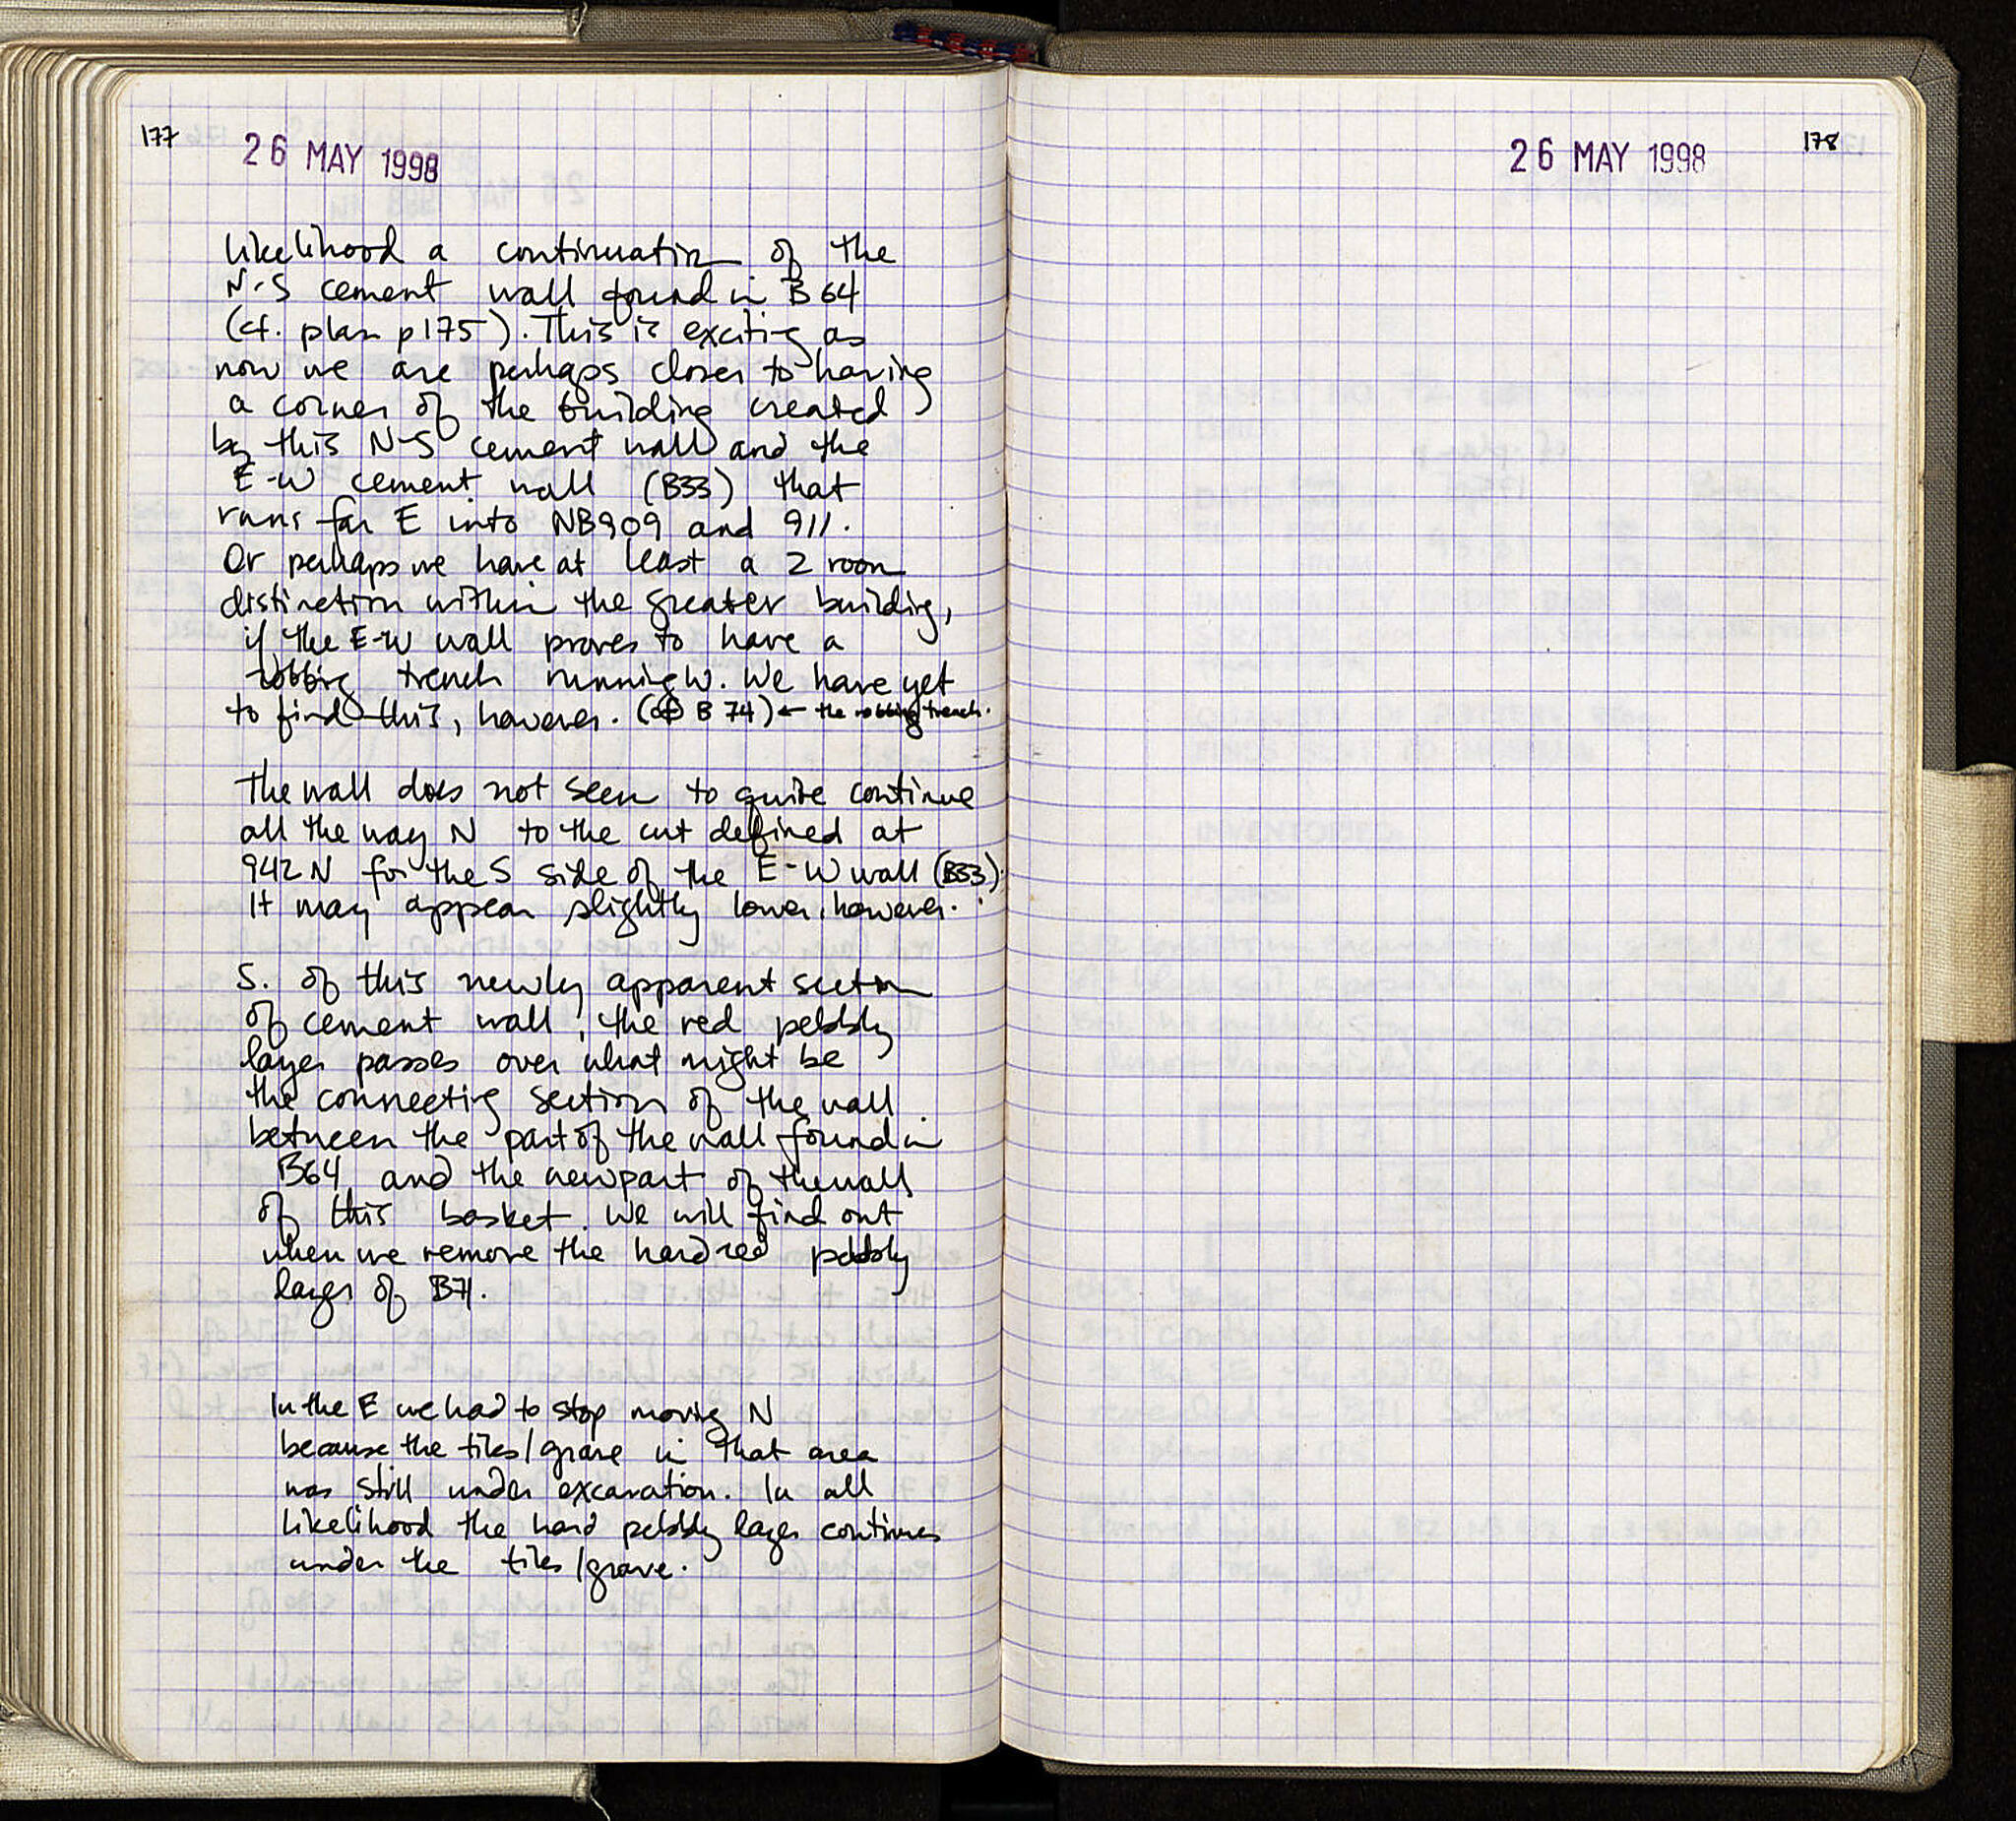 177
26 MAY 1998
likelihood a continuation of the
N-S cement wall found in B64
(cf. plan p175). This is exciting as
now we are perhaps closer to having
a corner of the building created
by this N-S cement wall and the
E-W cement wall (B33) that
runs far E into NB909 and 911.
Or perhaps we have at least a 2 room
distinction within the greater building,
if the E-W wall proves to have a
robbing trench running W. We have yet
to find this, however. (cf B 74) ← the robbing trench.
The wall does not seem to quite continue
all the way N to the cut defined at
942 N for the S side of the E-W wall (B33).
It may appear slightly lower, however.
S. of this newly apparent section
of cement wall, the red pebbly
layer passes over what might be
the connecting section of the wall
between the part of the wall found in
B64 and the new part of the wall
of this basket. We will find out
when we remove the hard red pebbly
layer of B71.
In the E we had to stop moving N
because the tiles/grave in that area
was still under excavation. In all
likelihood the hard pebbly layer continues
under the tiles/grave.
26 MAY 1998
178